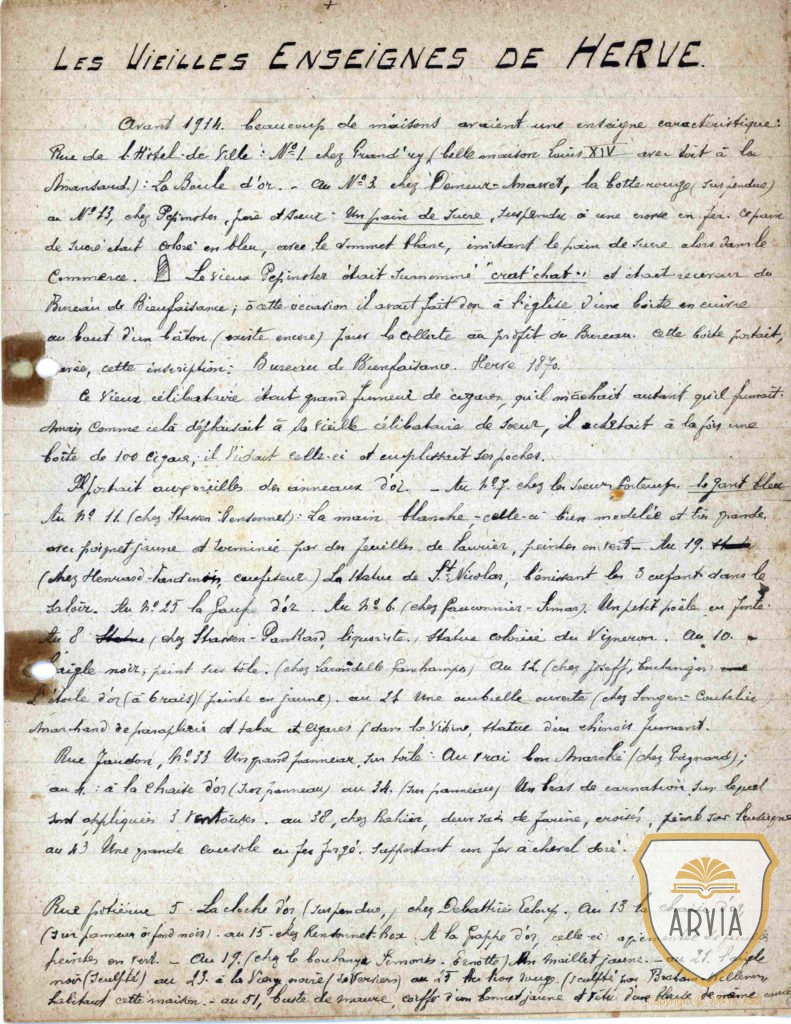 LES VIEILLES ENSEIGNES DE HERVE.
Avant 1914. beaucoup de maisons avaient une enseigne caractéristique:
Rue de l'Hôtel-de-Ville: N°1. chez Grand'ry (belle maison Louis XIV avec toit à la
Mansard): La Boule d'or. - Au N°3. chez Demeur-Massret, la botte rouge (suspendue)
au N°13, chez Pepinster, père et sœur: Un pain de Sucre, suspendu à une crosse en fer. Ce pain
de sucre était coloré en bleu, avec le sommet blanc, imitant le pain de sucre alors dans le
Commerce. Le vieux Pepinster était surnommé "crat'chat" et était receveur du
Bureau de Bienfaisance; à cette occasion il avait fait don à l'église d'une boîte en cuivre
au bout d'un bâton (existe encore) pour la collecte au profit du Bureau. Cette boîte portait,
cette inscription: Bureau de Bienfaisance. Herve 1870.
Ce vieux célibataire était grand fumeur de cigares, qu'il mâchait autant qu'il fumait.
Mais comme celà déplaisait à la vieille célibataire de sœur, il achetait à la fois une
boîte de 100 cigares; il vidait celle-ci et emplissait ses poches.
Il portait aux oreilles des anneaux d'or. - Au N°7. chez les sœurs le gant bleu
Au N° 11. (chez Stassen-Rensonnet): La main blanche, celle-ci bien modelée et très grande,
avec poignet jaune et terminée par des feuilles de laurier, peintes en vert - Au 19.
(chez Henrard- confiseur) La statue de St Nicolas, bénissant les 3 enfants dans le
saloir. Au N°25 la d'or. Au N°6 (chez Fauconnier-Simar). Un petit poêle en fonte.
Au 8 (chez Stassen- liquoriste) Statue coloriée du Vigneron. Au 10. -
L'aigle noir, peint sur tôle. (chez ) Au 12. (chez Joseph, boulanger)
L'étoile d'or (à 6 rais) (peinte en jaune). au 21 Une ombrelle ouverte (chez Coutelier)
Marchand de parapluies et tabac et cigares (dans la vitrine, statue d'un chinois fumant.
Rue Jardon, N°33 Un grand panneau, sur toile: Au vrai bon Marché (chez );
au 4: à la Chaise d'or (sur panneau) au 34. (sur panneau) Un bras de carnation sur lequel
sont appliquées 3 ventouses. au 38, chez Rahier, deux sacs de farine, croisés, peints sur l'enseigne
au 43 Une grande console en fer forgé. supportant un fer à cheval doré.
Rue potièrue 5 - La cloche d'or (suspendue,) chez Debatthier Au 13
(sur panneau à fond noir). au 15 - chez Rensonnet- A la Grappe d'or, celle-ci
peintes en vert. - Au 19. (chez le boulanger Simonis- ) Un maillet jaune. - au 21. l'aigle
noir (sculpté) au 23. à la Vierge noire (de Verviers) au 25 Au lion rouge. (sculpté par
habitant cette maison. - au 51, buste de maure, coiffé d'un bonnet jaune et vêtu d'une blouse de même
ARVIA